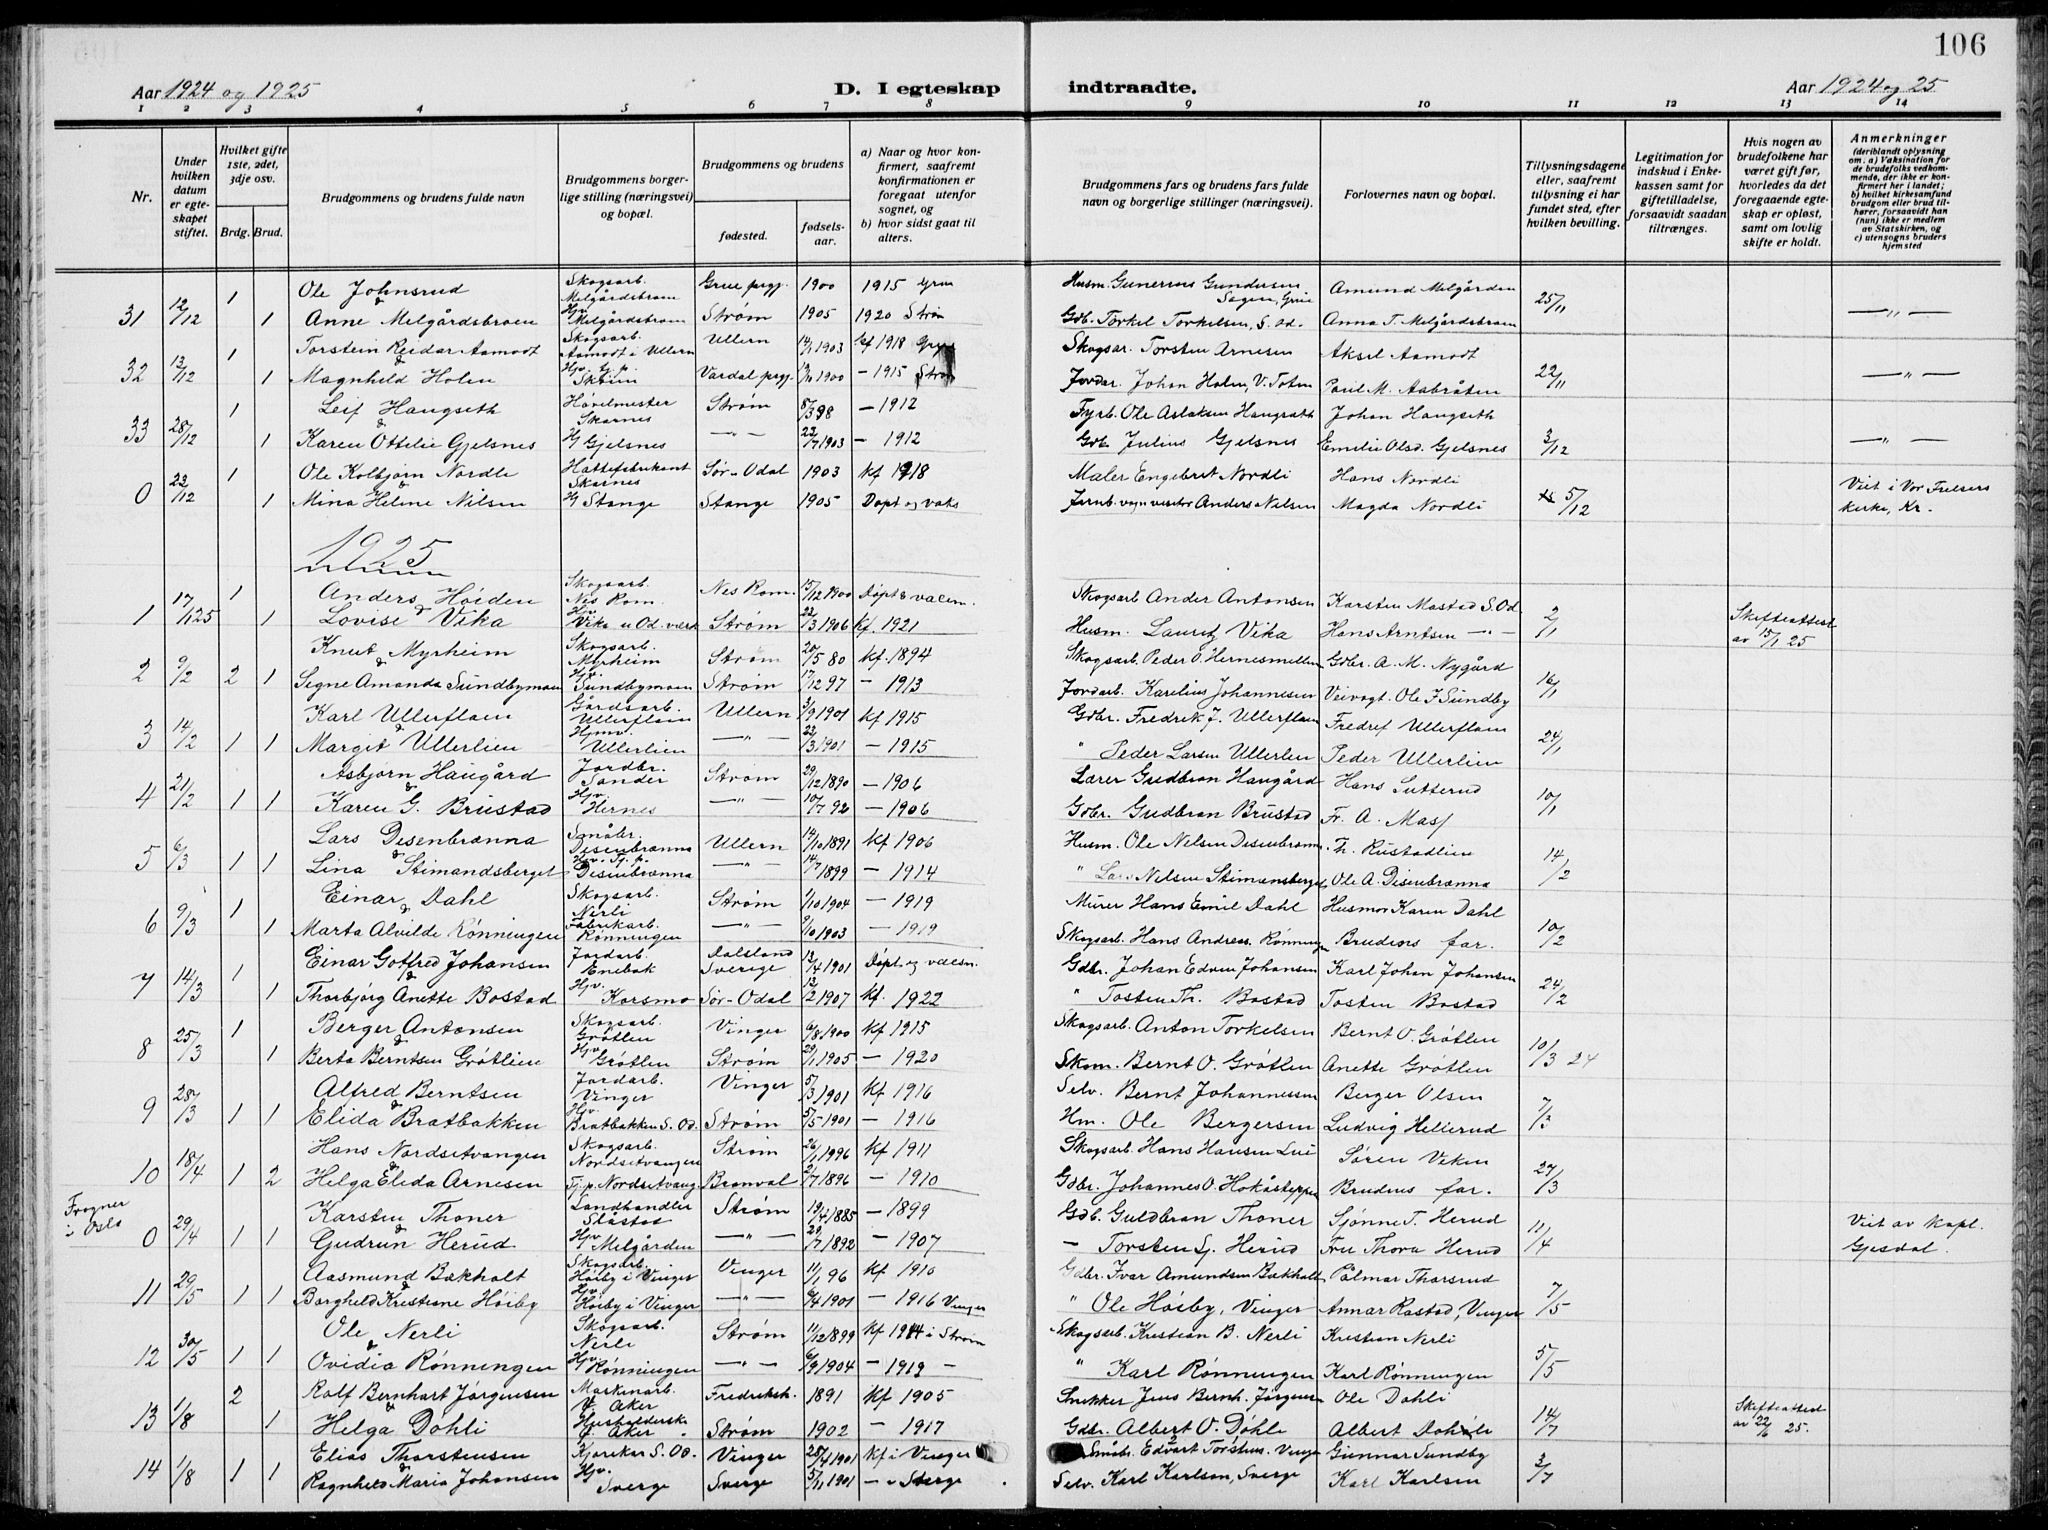 106
Aar 1924 og 1925 D. I egteskap indtraadte. Aar 1924 og 25
1 2 3 4 5 6 7 8 9 10 11 12 13 14
Nr.
Under hvilken datum er egteskapet stiftet.
Hvilket gifte 1ste, 2det, 3dje osv.
Brdg. Brud.
Brudgommens og brudens fulde navn
Brudgommens borgerlige stilling (næringsvei) og bopæl.
Brudgommens og brudens
fødested. fødselsaar.
a) Naar og hvor konfirmert, saafremt konfirmationen er foregaat utenfor sognet, og
b) hvor sidst gaat til alters.
Brudgommens fars og brudens fars fulde navn og borgerlige stillinger (næringsvei).
Forlovernes navn og bopæl.
Tillysningsdagene eller, saafremt tillysning ei har fundet sted, efter hvilken bevilling.
Legitimation for indskud i Enkekassen samt for giftetilladelse, forsaavidt saadan tiltrænges.
Hvis nogen av brudefolkene har været gift før, hvorledes da det foregaaende egteskap er opløst, samt om lovlig skifte er holdt.
Anmerkninger
(deriblandt oplysning om. a) Vaksination for de brudefolks vedkommende, der ikke er konfirmert her i landet; b) hvilket kirkesamfund brudgom eller brud tilhører, forsaavidt han (hun) ikke er medlem av Statskirken, og c) utensogns bruders hjemsted
1 Ole Johnsrud & Skogsarb. Melgårdsbraen Grue prgj. 1900 1915 Grue Husm. Gunerius Gundersen Sagen, Grue Amund Melgården
31 12/12 1 Anne Melgårdsbraen Hjv. Melgårdsbraen Strøm 1905 1920 Strøm Gdb. Torkel Torkelsen, S. Od. Anna T. Melgårdsbraen 25/11 — " —
1 Torstein Reidar Aamodt Skogsarb. Aamodt i Ullern Ullern 14/1 1903 kf 1918 Skogsar. Torsten Arnesen Aksel Aamodt
32 13/12 1 Magnhild Holen Hjv. tj. p. Strøm Vardal prgj. 1900 — 1915 Strøm Jordar. Johan Holen, V. Toten Paul M. Aabråten 22/11 — " —
1 Leif Haugseth Høvelmester Skarnes Strøm 8/3 98 — 1912 Fyrb. Ole Aslaksen Haugseth Johan Haugseth
33 28/12 1 Karen Ottelie Gjelsnes Hj Gjelsnes — " — 22/7 1903 — 1912 Gdb. Julius Gjelsnes Emelie Olsd. Gjelsnes 3/12 — " —
1 Ole Kolbjørn Nordli & Hattefabrikant Skarnes Sør-Odal 1903 kf 1918 Maler Engebret Nordli Hans Nordli
0 22/12 1 Mina Helene Nilsen Hj Stange Stange 1905 Døpt og vaks Jernb. vognvisitør Anders Nilsen Magda Nordli 5/12 Viet i Vor Frelsers kirke, Kr.
1925
1 Anders Høiden & Skogsarb. Nes Rom. Nes Rom. 15/12 1900 Døpt & vaccin. Skogsarb Ander Antonsen Karsten Mastad S. Od
1 17/1 25 1 Lovise Vika Hjv. Vika u Od. verk Strøm 22/3 1906 kf. 1921 Husm. Lauritz Vika Hans Arntsen — " — 2/1 Skifteattest av 15/1 25
Knut Myrheim & Skogsarb. Myrheim Strøm 20/5 80 kf. 1894 Skogsarb. Peder O. Hernesmellem Gdbr. A. M. Nygård
2 9/2 2 1 Signe Amanda Sundbymoen Hjv. Sundbymoen Strøm 17/12 97 — 1913 Jordarb. Karelius Johannesen Veivogt. Ole F. Sundby 16/1
Karl Ullerflaen & Gårdsarb. Ullerflaen Ullern 3/9 1901 kf 1915 Gdbr. Fredrik J. Ullerflaen Fredref Ullerflaen
3 14/2 1 1 Margit Ullerlien Hjmv. Ullerlien — " — 22/3 1901 — 1915 " Peder Larsen Ullerlien Peder Ullerlien 24/1
Asbjørn Haugård & Jordbr. Sander Strøm 29/12 1890 — 1906 Lærer Gudbran Haugård Hans Sutterud
4 21/2 1 1 Karen G. Brustad Hjv. Hernes — " — 10/7 92 — 1906 Gdbr. Gudbran Brustad Fr. A. Masj 10/1
Lars Disenbrænna & Småbr. Disenbrænna Ullern 14/10 1891 kf 1906 Husm. Ole Nelsen Disenbrænna Th. Rustadlien
5 6/3 1 1 Lina Stimandsberget Hjv. Tj. p. Disenbrænna — " — 14/7 1899 — 1914 " Lars Nelsen Stimansberget Ole A. Disenbrænna 14/2
1 Einar Dahl & Skogsarb. Nerli Strøm 1/10 1904 — 1919 Murer Hans Emil Dahl Husmor Karen Dahl
6 9/3 1 Marta Alvilde Rønningen Fabrikarb. Rønningen — " — 9/10 1903 — 1919 Skogsarb. Hans Andreas. Rønningen Brudens far. 10/2
1 Einar Gotfred Johansen & Jordarb. Enebak Dalsland Sverige 13/4 1901 Døpt. og vaksn. Gdbr. Johan Edvin Johansen Karl Johan Johansen
7 14/3 1 Thorbjørg Anette Bostad Hjv. Korsmo Sør-Odal 12/2 1907 kf. 1922 " Tosten Th. Bostad Tosten Bostad 24/2
1 Berger Antonsen & Skogsarb. Grøtlen Vinger 6/8 1900 kf 1915 Skogsarb. Anton Torkelsen Bernt O. Grøtlen
8 25/3 1 Berta Berntsen Grøtlien Hjv. Grøtlen Strøm 29/1 1905 — 1920 Skom. Bernt O. Grøtlen Anette Grøtlen 10/3 24
Alfred Berntsen & Jordarb. Vinger Vinger 5/3 1901 kf 1916 Selv. Bernt Johannessen Berger Olsen
9 28/3 1 1 Elida Bratbakken Hjv. Bratbakken S. Od. Strøm 5/5 1901 — 1916 Hm. Ole Bergersen Ludvig Hellerud 7/3
Hans Nordsetvangen & Skogsarb. Nordsetvangen Strøm 26/1 1996 kf 1911 Skogsarb. Hans Hansen Lie Søren Viken
10 18/4 1 2 Helga Elida Arnesen Tj. p. Nordsetvang. Branval 21/7 1896 — 1910 Gdbr. Johannes O. Hokåsteppen Brudens far. 27/3
Frogner i Oslo Karsten Thoner & Landhandler Slåstad Strøm 13/4 1885 — 1899 Gdb. Guldbran Thoner Sjønne T. Herud
0 29/4 1 1 Gudrun Herud Hjv. Melgården — " — 29/7 1892 — 1907 — Torsten Sj. Herud Fru Thora Herud 11/4 Viet av kapl. Gjesdal.
Aasmund Bækholt & Skogsarb. Høiby i Vinger Vinger 11/1 96 kf 1910 Gdbr. Ivar Amundsen Bækholt Pålmar Thorsrud
11 29/5 1 1 Borghild Kristiane Høiby Hjv. Høiby i Vinger — " — 6/4 1901 — 1916 Vinger " Ole Høiby, Vinger Annar Rastad, Vinger 7/5
Ole Nerli & Skogsarb. Nerli Strøm 11/12 1899 kf 1914 i Strøm Skogsarb. Kristian B. Nerli Kristian Nerli
12 30/5 1 1 Ovidia Rønningen Hjv. Rønningen — " — 6/9 1904 — 1919 — " Karl Rønningen Karl Rønningen 5/5
2 Rolf Bernhart Jørgensen & Maskinarb. V. Aker Fredriksh. 1891 kf 1905 Snekker Jens Bernh. Jørgens Ole Dahli
13 1/8 1 Helga Døhli V. Aker Strøm 1902 — 1917 Gdbr. Albert O. Døhle Albert Døhle 14/7 Skifteattest av 22/6 25.
Elias Thorstensen & Kjørekar S. Od. Vinger 28/4 1901 kf i Vinger Småb. Edvart Torstens. Vinger Gunnar Sundby
14 1/8 1 1 Ragnhild Maria Johansen Hjv. Sverge Sverge 5/11 1901 — " Sverge Selv. Karl Karlson, Sverge Karl Karlsen 3/7